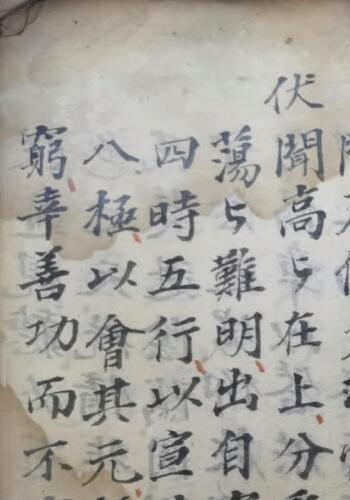 伏聞高々在上分
蕩々難明出自
四時五行以宣
八極以會其元
窮幸善功而不